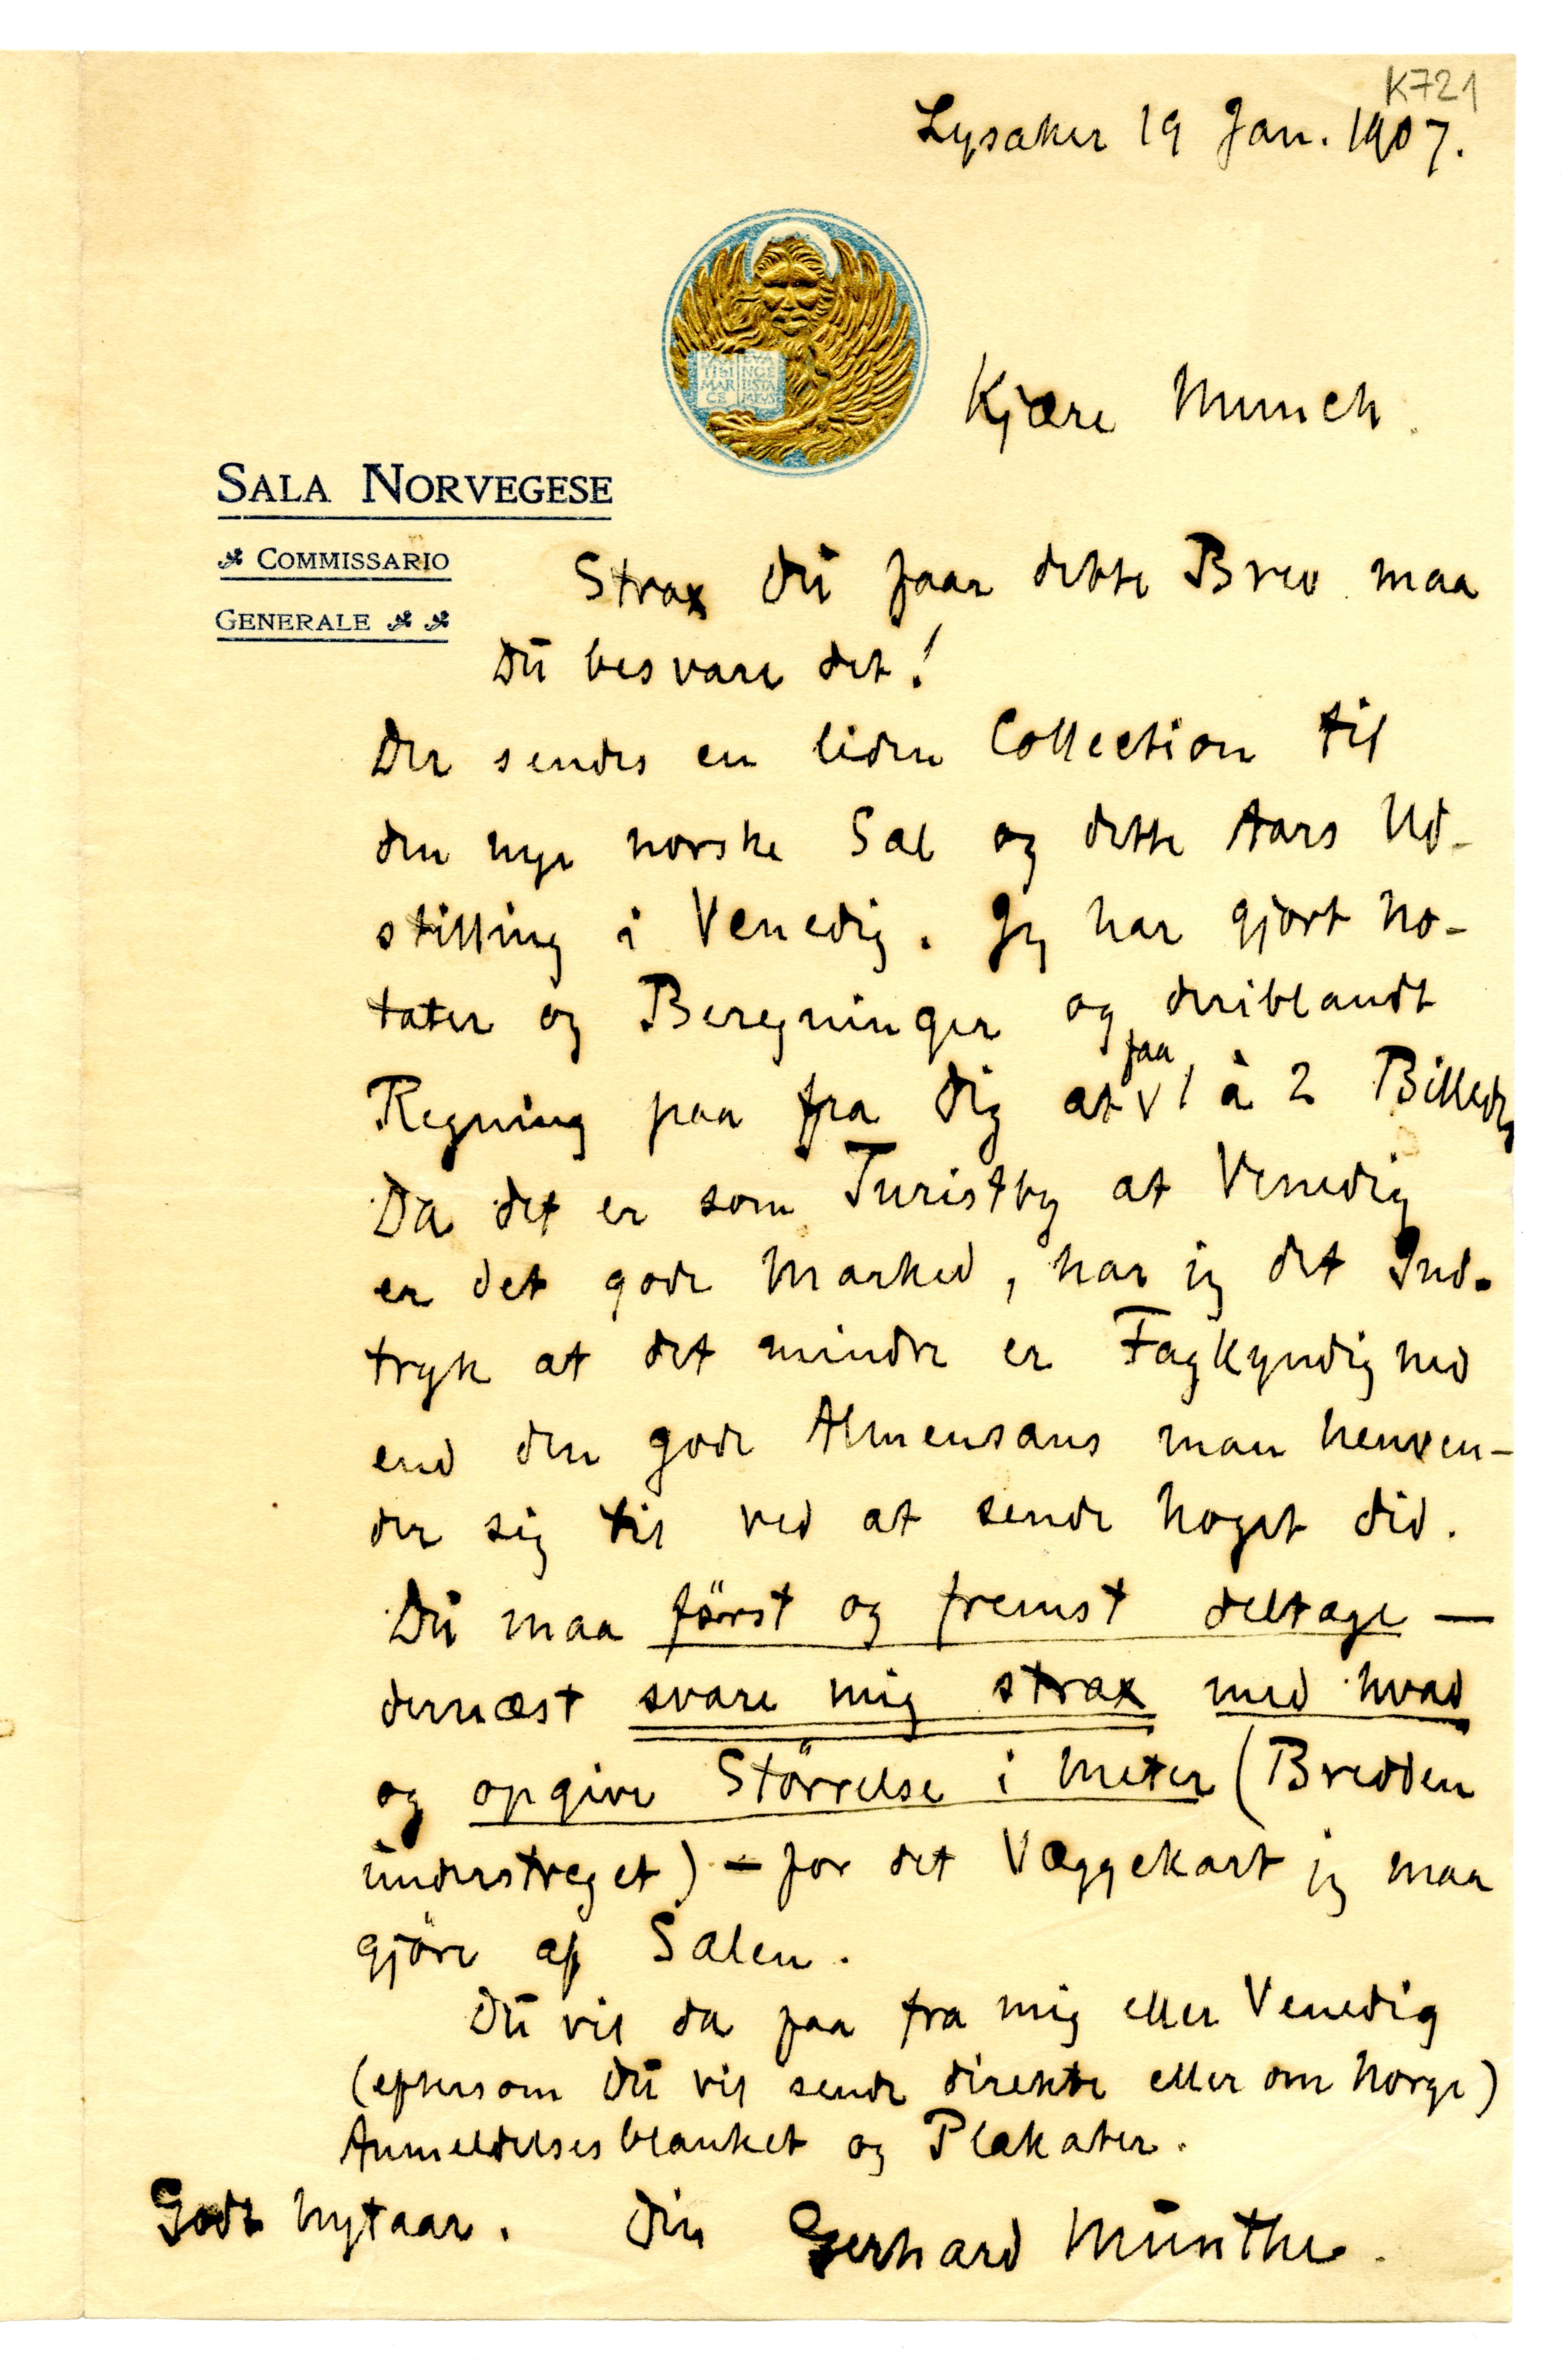 K721
Lysaker 19 Jan. 1907.
PAX TIBI MARCE EVANGELISTA MEUS
Kjære Munch.
SALA NORVEGESE
COMMISSARIO
GENERALE
Strax Du faar dette Brev maa
Du besvare det!
Der sendes en liden Collection til
den nye norske Sal og dette Aars Ud-
stilling i Venedig. Jeg har gjort No-
tater og Beregninger og deriblandt
Regning paa fra Dig at faa 1 à 2 Billeder
Da det er som Turistby at Venedig
er det gode Marked, har jeg det Ind-
tryk at det mindre er Fagkyndighed
end den gode Almensans man henven-
der sig til ved at sende noget did.
Du maa först og fremst deltage —
dernæst svare mig strax med hvad
og opgive Störrelse i Meter (Bredden
understreget) – for det Væggekart jeg maa
gjöre af Salen.
Du vil da faa fra mig eller Venedig
(eftersom Du vil sende direkte eller om Norge)
Anmeldelsesblanket og Plakater.
Godt Nytaar. Din Gerhard Munthe.